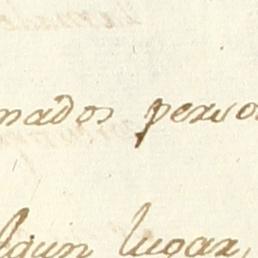 mados perso
lgun lugar,